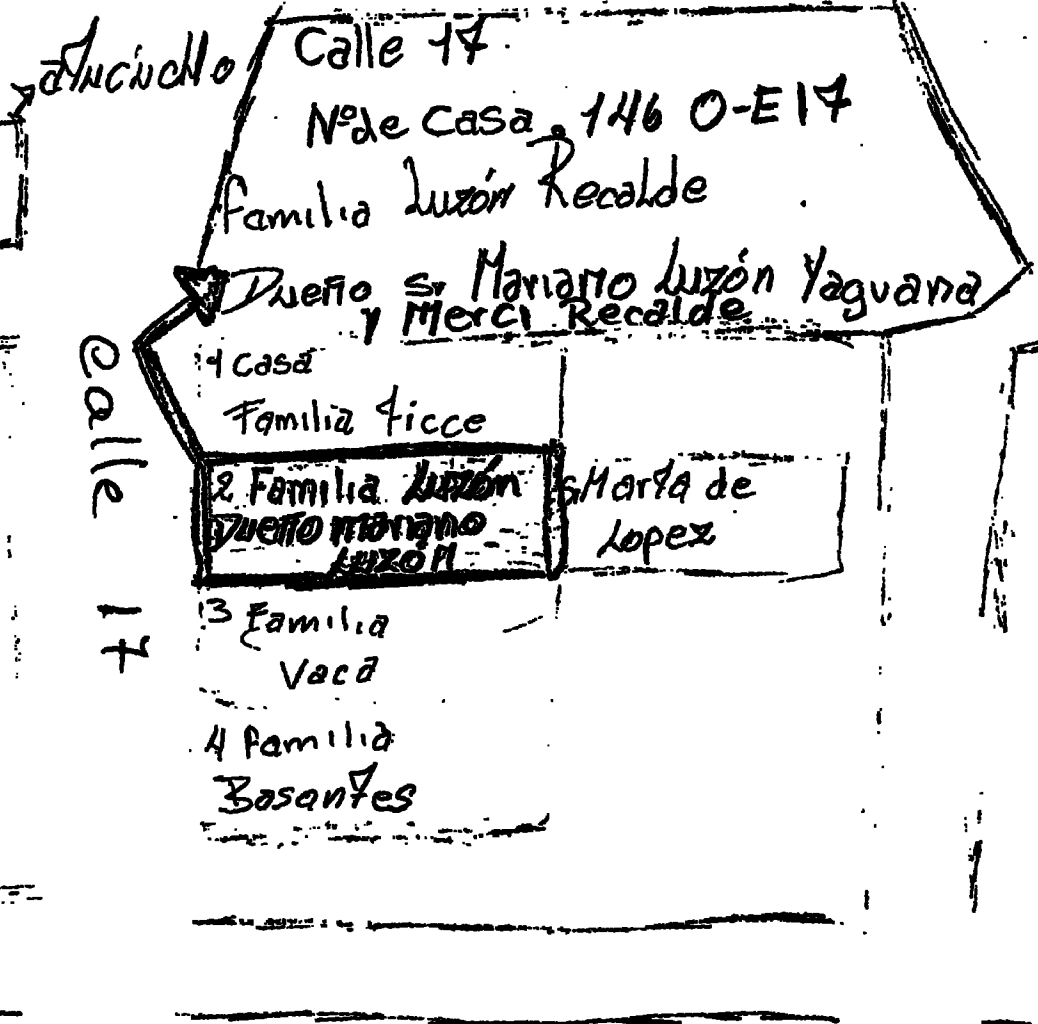 Calle 17
Nº de Casa. 146 O-E17
Familia Luzón Recalde
Dueño Sr Mariano Luzón Yaguana
y Merci Recalde
1 Casa
Familia Ficce
2 Familia Luzón
Dueño mariano
Luzón
Marta de
Lopez
3 Familia
Vaca
4 Familia
Basantes
Calle 17